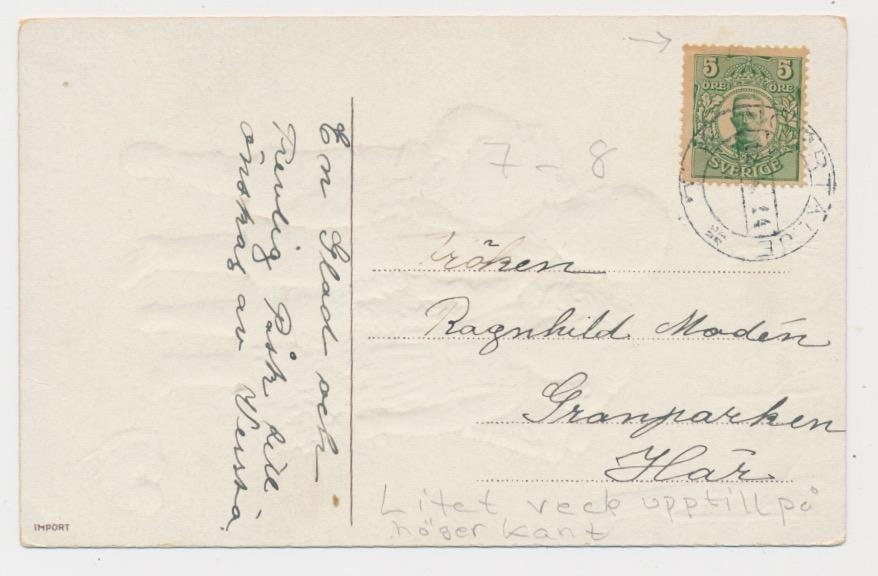 En Glad och
Trevlig Påsk
önskas av
5 5
ÖRE ÖRE
SVERIGE
7-8
Fröken
Ragnhild Modén
Granparken
Här
Litet veck upptill på
höger kant
IMPORT